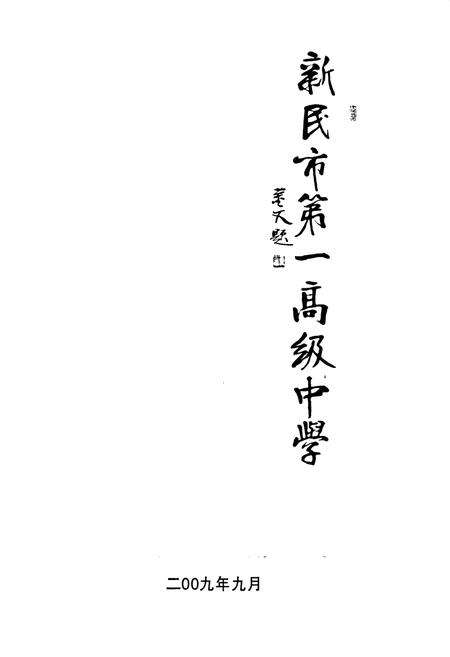 新民市第一高级中學
二00九年九月